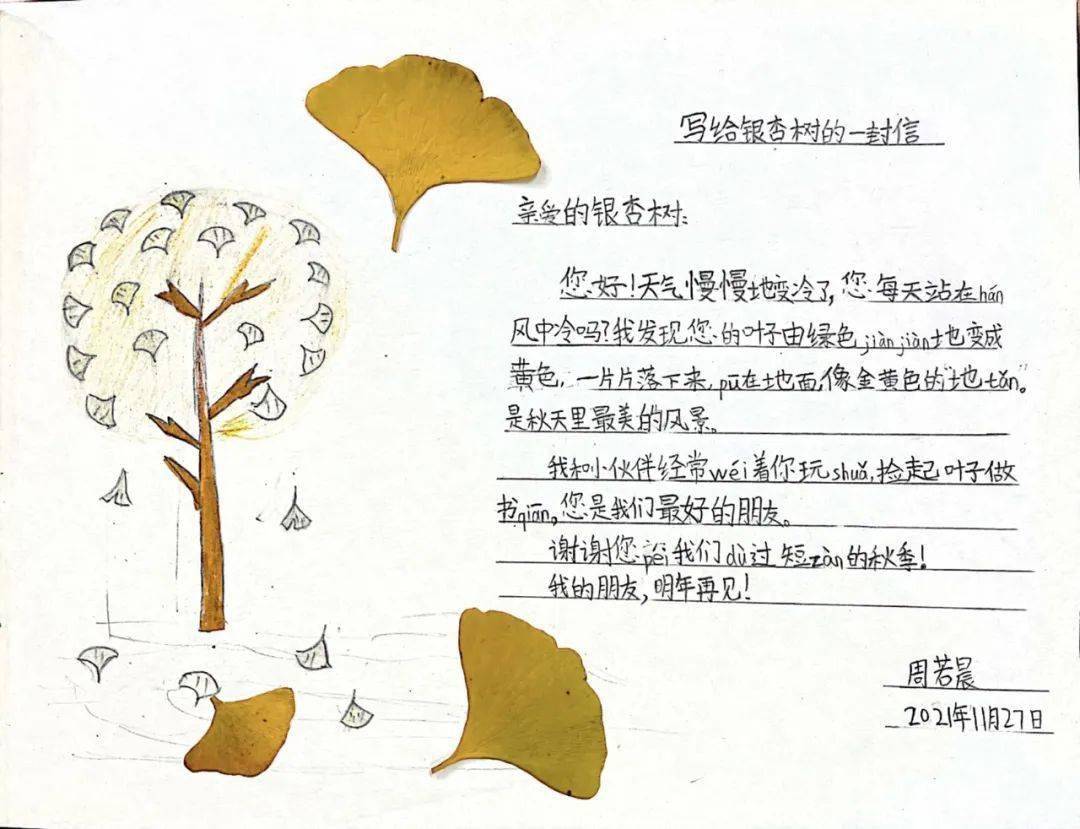 写给银杏树的一封信
亲爱的银杏树:
您好!天气慢慢地变冷了,您每天站在hán
风中冷吗?我发现您的叶子由绿色jiànjiàn地变成
黄色,一片片落下来,pū在地面,像金黄色的“地tǎn”。
是秋天里最美的风景。
我和小伙伴经常wéi着你玩shuǎ,捡起叶子做
书qiān。您是我们最好的朋友。
谢谢您péi我们dù过短zàn的秋季!
我的朋友,明年再见!
周若晨
2021年11月27日